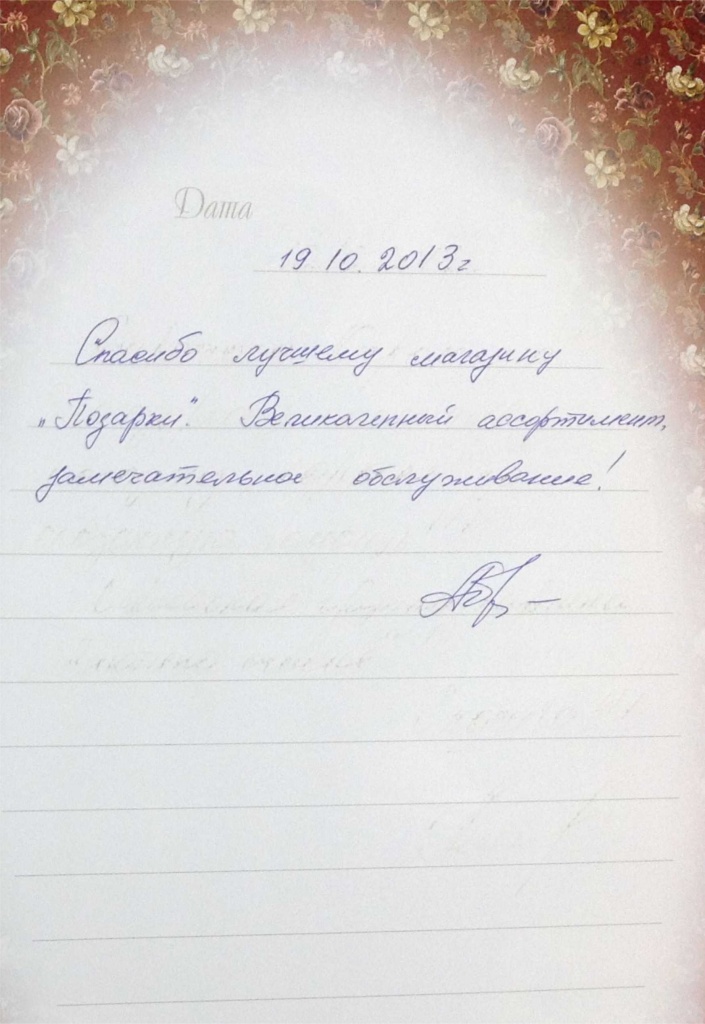 Дата
19.10.2013г
Спасибо лучшему магазину
„Позарки“. Великолепный ассортимент,
замечательное обслуживание!